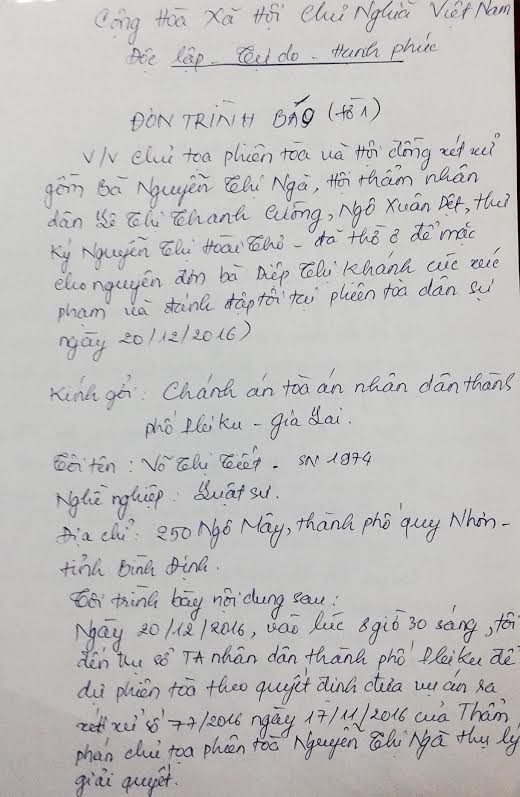 Cộng Hòa Xã Hội Chủ Nghĩa Việt Nam
Độc lập - Tự do - Hạnh phúc
ĐƠN TRÌNH BÁO (tờ 1)
V/V chủ tọa phiên tòa và Hội đồng xét xử
gồm Bà Nguyễn Thị Ngà, Hội thẩm nhân
dân Lê Thị Thanh Cường, Ngô Xuân Dệt, thư
ký Nguyễn Thị Hoài Thơ - đã thờ ơ để mặc
cho nguyên đơn bà Diệp Thị Khánh Cúc xúc
phạm và đánh đập tôi tại phiên tòa dân sự
ngày 20/12/2016)
Kính gởi: Chánh án tòa án nhân dân thành
phố Pleiku - Gia Lai.
Tôi tên: Võ Thị Tiết - SN 1974
Nghề nghiệp: Luật sư.
Địa chỉ: 250 Ngô Mây, thành phố Quy Nhơn -
tỉnh Bình Định.
Tôi trình bày nội dung sau:
Ngày 20/12/2016, vào lúc 8 giờ 30 sáng, tôi
đến trụ sở TA nhân dân thành phố Pleiku để
dự phiên tòa theo quyết định đưa vụ án ra
xét xử số 77/2016 ngày 17/11/2016 của Thẩm
phán chủ tọa phiên tòa Nguyễn Thị Ngà thụ lý
giải quyết.